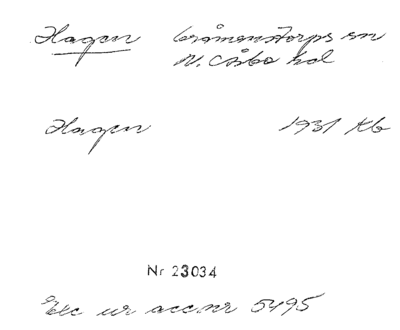 Hagen Gråmanstorps sn
N. Åsbo hd
Hagen 1931 Kb
Nr 23034
Exc ur acc.nr 5495